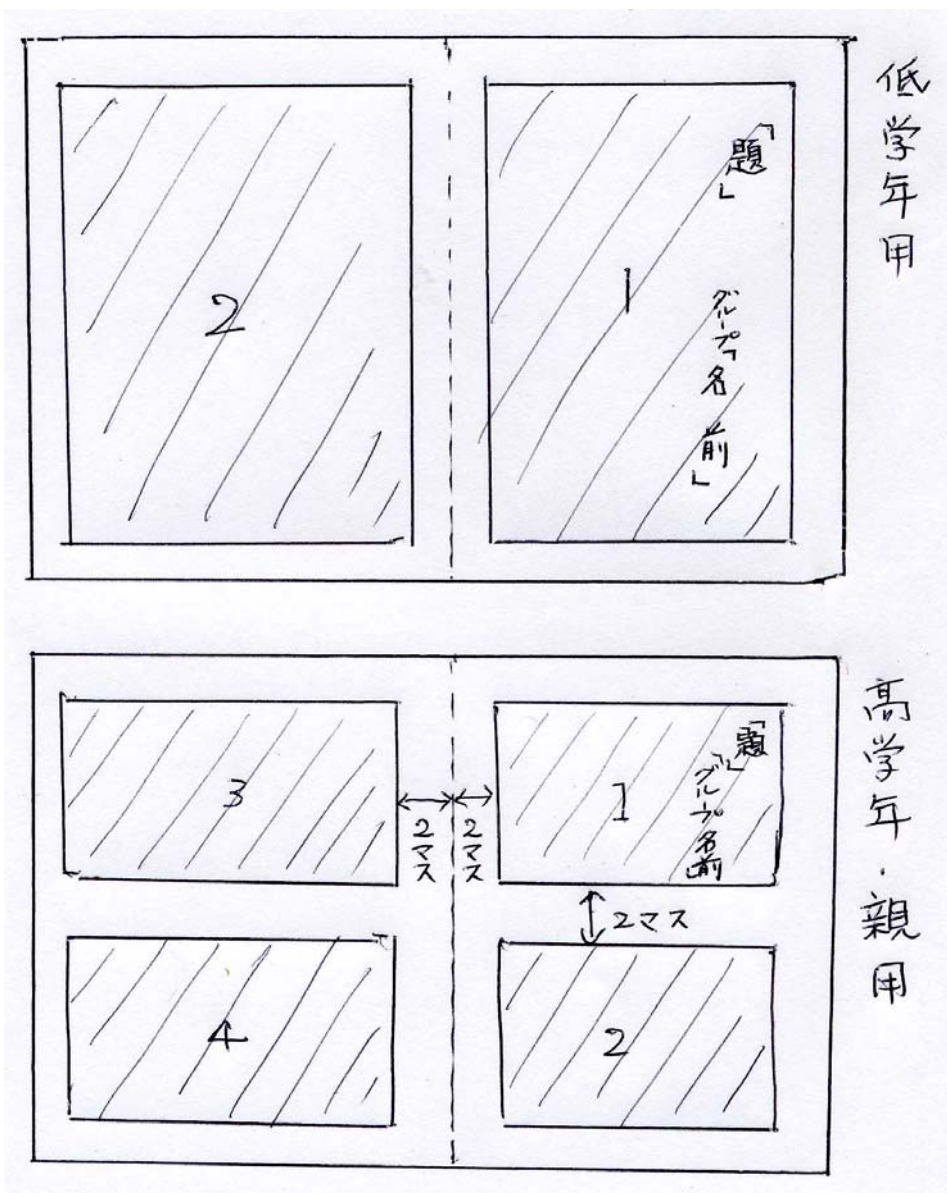 低学年用
「題」
グループ名
前」
1
2
高学年・親用
「題」
グループ名前」
1
2マス
2マス
2マス
2
3
4